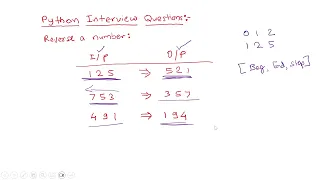 Python Interview Questions:-
Reverse a number:
I/p O/p
125 ⇒ 521
753 ⇒ 357
491 ⇒ 194
0 1 2
1 2 5
[Beg, End, step]